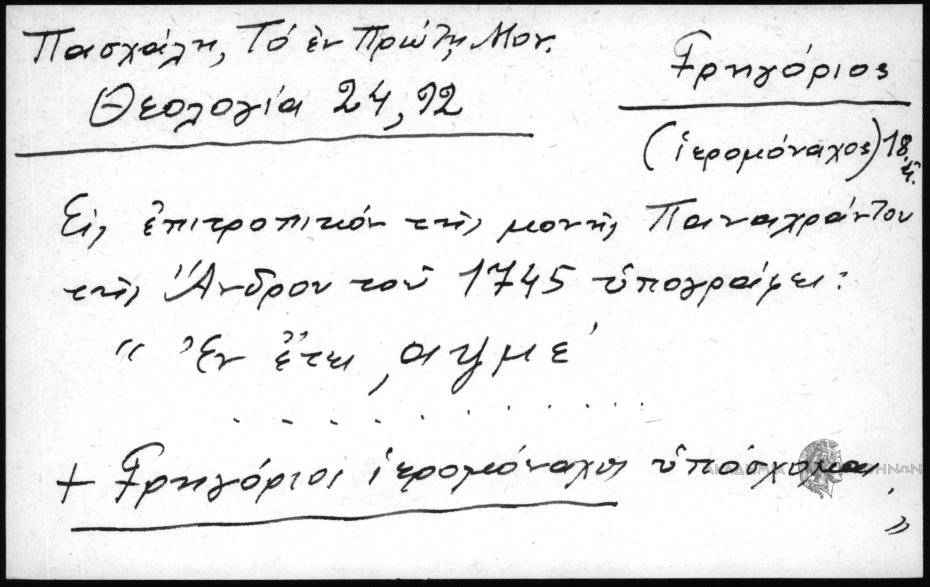 Πασχάλη, Τό ἐν Πρώτῃ Μον.
Θεολογία 24, 92
Γρηγόριος
(ἱερομόναχος) 18 αἰ.
Εἰς ἐπιτροπικόν τῆς μονῆς Παναχράντου
τῆς Ἄνδρου τοῦ 1745 ὑπογράφει:
“ Ἐν ἔτει ͵αψμε΄
. . . . . . . . . . .
+ Γρηγόριος ἱερομόναχος ὑπόσχομαι.
”